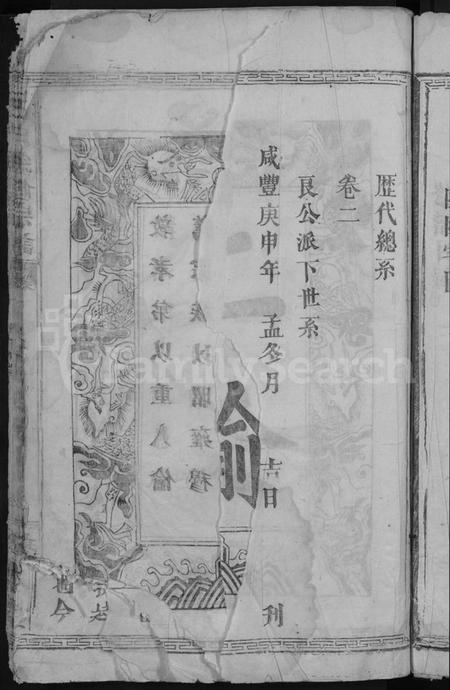 歷代總系
卷二
良公派下世系
咸豐庚申年 孟冬月 吉日 刊
俞
篤宗族以昭雍穆
敦孝弟以重人倫
FamilySearch